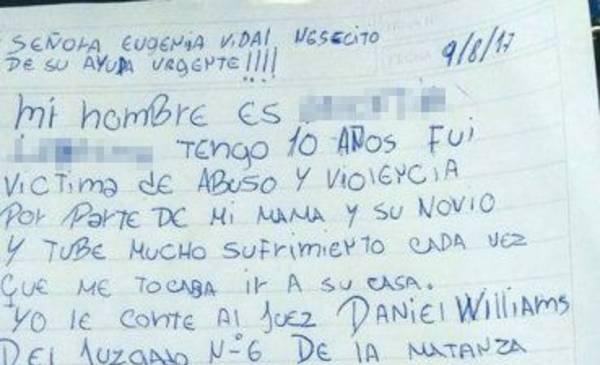 SEÑORA EUGENIA VIDAL NESECITO
DE SU AYUDA URGENTE!!!!
9/8/17
Mi NOMBRE ES
TENGO 10 AÑOS FUI
VICTIMA DE ABUSO Y VIOLENCIA
POR PARTE DE MI MAMA Y SU NOVIO
Y TUBE MUCHO SUFRIMIENTO CADA VEZ
QUE ME TOCABA IR A SU CASA.
YO LE CONTE AL JUEZ DANIEL WILLIAMS
DEL JUZGADO Nº6 DE LA MATANZA